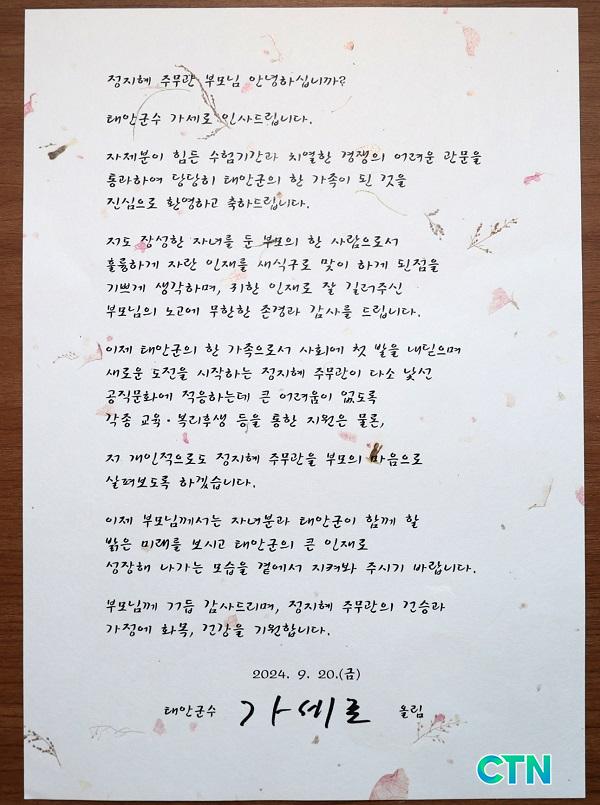 정지혜 주무관 부모님 안녕하십니까?
태안군수 가세로 인사드립니다.
자제분이 힘든 수험기간과 치열한 경쟁의 어려운 관문을
통과하여 당당히 태안군의 한 가족이 된 것을
진심으로 환영하고 축하드립니다.
저도 장성한 자녀를 둔 부모의 한 사람으로서
훌륭하게 자란 인재를 새식구로 맞이 하게 된점을
기쁘게 생각하며, 귀한 인재로 잘 길러주신
부모님의 노고에 무한한 존경과 감사를 드립니다.
이제 태안군의 한 가족으로서 사회에 첫 발을 내딛으며
새로운 도전을 시작하는 정지혜 주무관이 다소 낯선
공직문화에 적응하는데 큰 어려움이 없도록
각종 교육·복리후생 등을 통한 지원은 물론,
저 개인적으로도 정지혜 주무관을 부모의 마음으로
살펴보도록 하겠습니다.
이제 부모님께서는 자녀분과 태안군이 함께 할
밝은 미래를 보시고 태안군의 큰 인재로
성장해 나가는 모습을 곁에서 지켜봐 주시기 바랍니다.
부모님께 거듭 감사드리며, 정지혜 주무관의 건승과
가정에 화목, 건강을 기원합니다.
2024. 9. 20.(금)
태안군수 가세로 올림
CTN